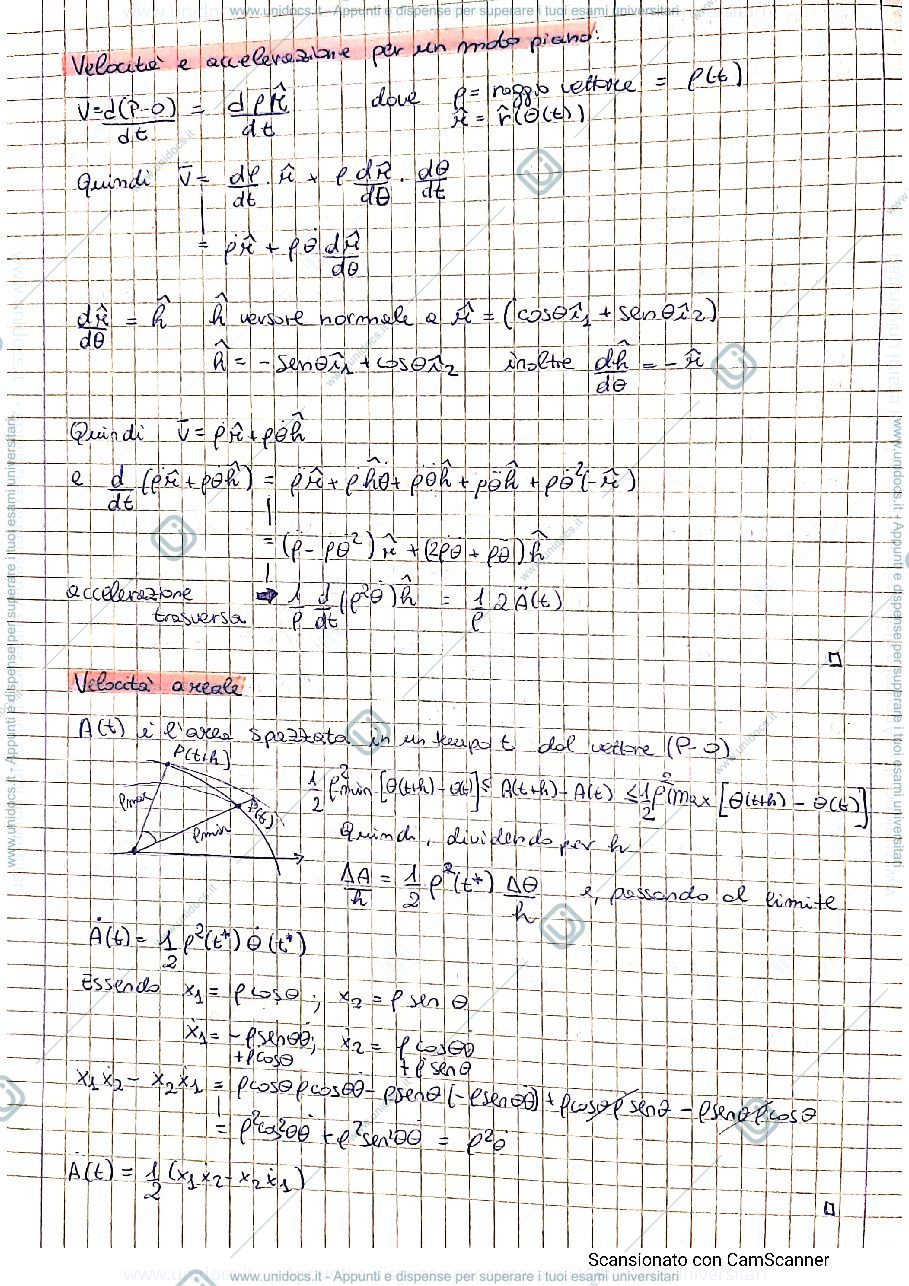 www.unidocs.it - Appunti e dispense per superare i tuoi esami universitari
Velocità e accelerazione per un moto piano:
V = d(P-O)/dt = dρr̂/dt dove ρ = raggio vettore = ρ(t)
r̂ = r̂(θ(t))
Quindi v̄ = dρ/dt · r̂ + ρ dr̂/dθ · dθ/dt
= ρ̇r̂ + ρθ̇ dr̂/dθ
dr̂/dθ = ĥ ĥ versore normale a r̂ = (cosθî₁ + senθî₂)
ĥ = -senθî₁ + cosθî₂ inoltre dĥ/dθ = -r̂
Quindi v̄ = ρ̇r̂ + ρθ̇ĥ
e d/dt (ρ̇r̂ + ρθ̇ĥ) = ρ̈r̂ + ρ̇ĥθ̇ + ρ̇θ̇ĥ + ρθ̈ĥ + ρθ̇²(-r̂)
= (ρ̈ - ρθ̇²)r̂ + (2ρ̇θ̇ + ρθ̈)ĥ
accelerazione
trasversa ⇒ 1/ρ d/dt (ρ²θ̇)ĥ = 1/ρ 2Ä(t)
Velocità areale
A(t) è l'area spazzata in un tempo t dal vettore (P-O)
P(t+h)
ρmax
P(t)
ρmin
1/2 ρ²min [θ(t+h) - θ(t)] ≤ A(t+h) - A(t) ≤ 1/2 ρ²max [θ(t+h) - θ(t)]
Quindi, dividendo per h
ΔA/h = 1/2 ρ²(t*) Δθ/h e, passando al limite
Ȧ(t) = 1/2 ρ²(t*) θ̇(t*)
Essendo x₁ = ρcosθ ; x₂ = ρ sen θ
ẋ₁ = -ρsenθθ̇; ẋ₂ = ρ cosθθ̇
+ρ̇cosθ +ρ̇ senθ
x₁ẋ₂ - x₂ẋ₁ = ρcosθρcosθθ̇ - ρsenθ(-ρsenθθ̇) + ρcosθρ̇senθ - ρsenθρ̇cosθ
= ρ²cos²θθ̇ + ρ²sen²θθ̇ = ρ²θ̇
Ȧ(t) = 1/2 (x₁ẋ₂ - x₂ẋ₁)
Scansionato con CamScanner
www.unidocs.it - Appunti e dispense per superare i tuoi esami universitari